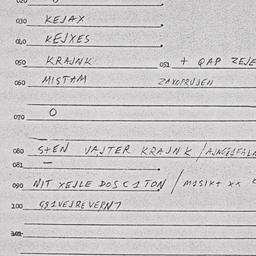 020
030 KEJAX
040 KEJXES
050 KRAJNK 051 + QAP ZEJE
060 MISTAM ZAKOPRUJEN
070 O
080 STEN VAJTER KRAJNK /
081 —
090 NIT XEJLE DOS C1TON / MISIKT XX
100 GS1VEJREVERN7